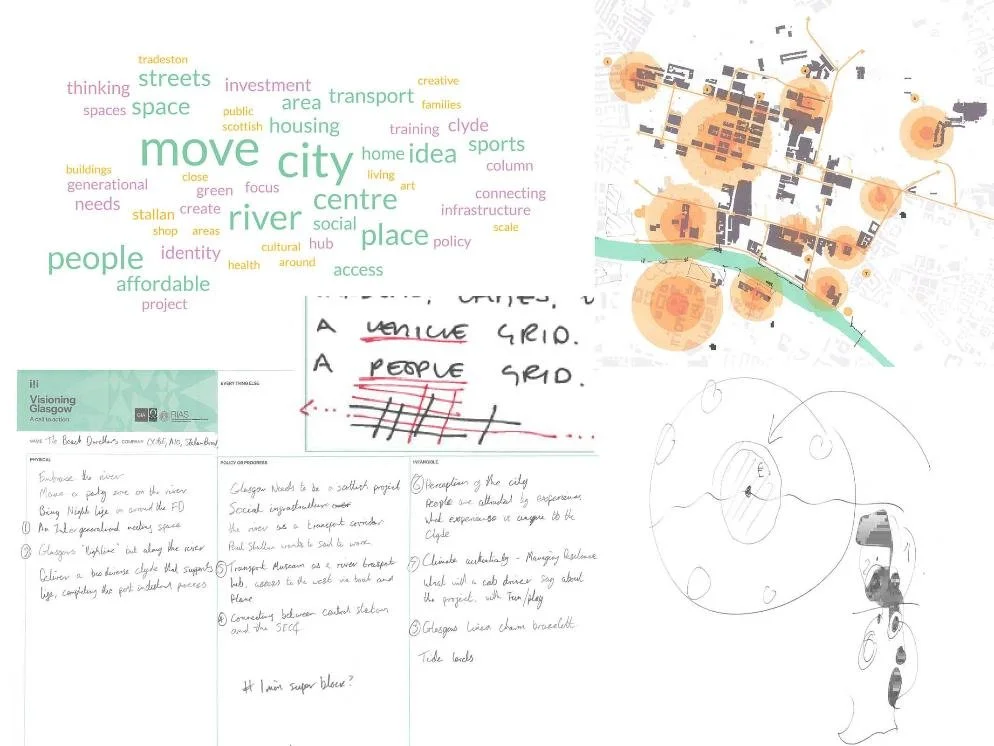 tradeston
streets
thinking
investment
creative
spaces
space
area
transport
public
families
scottish
housing
training
clyde
move
city
home
idea
sports
buildings
column
generational
close
living
green
focus
art
connecting
needs
centre
stallan
create
river
social
infrastructure
shop
areas
place
policy
scale
people
identity
cultural
hub
health
around
access
affordable
project
A VEHICLE GRID.
A PEOPLE GRID.
Visioning
Glasgow
A call to action
GIA
RIAS
NAME The Beach Dwellers COMPANY
EVERYTHING ELSE
PHYSICAL
Embrace the river
Make a party zone on the river
Bring Night life in around the
① An Intergenerational meeting space
Glasgows "highline" but along the river
Deliver a biodiverse clyde that supports
life, completing the post industrial process
POLICY OR PROGRESS
Glasgow Needs to be a scottish project
Social infrastructure
the river as a transport corridor
Paul Stallan wants to sail to work
⑤ Transport Museum as a river transport
hub, access to the west via boat and
Plane
④ Connecting between central station
and the SECC
# 1 min super block?
INTANGIBLE
⑥ Perception of the city
People are attracted by experiences
what experience is unique to the
Clyde
Climate authenticity - Managing Resilience
What will a cab driver say about
the project, with Fun/play
Glasgows linear charm bracelet
Tide levels
£